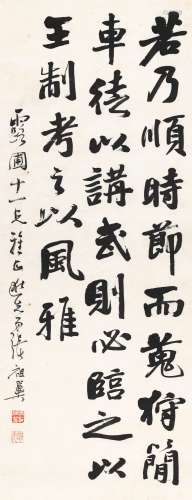 若乃順時節而蒐狩簡
車徒以講武則必臨之以
王制考之以風雅
圃十一兄雅正弟張祖翼